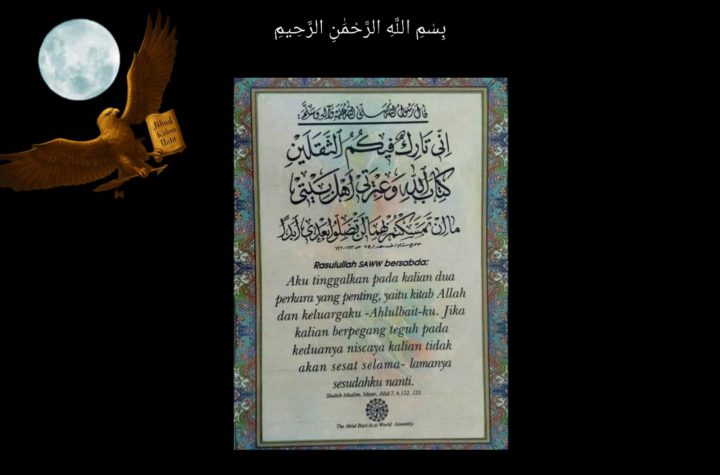 بِسْمِ اللَّهِ الرَّحْمَٰنِ الرَّحِيمِ
Jihad
Kalem
Ilahi
قال رسول الله صلى الله عليه وآله وسلم:
اِنّى تَارِكٌ فيكُمُ الثَّقَلَيْنِ
كِتَابَ اللهِ وَعِتْرَتى اَهْلَ بَيْتى
مَا اِنْ تَمَسَّكْتُمْ بِهِمَا لَنْ تَضِلُّوا بَعْدى اَبَدًا
Rasulullah SAWW bersabda:
Aku tinggalkan pada kalian dua
perkara yang penting, yaitu kitab Allah
dan keluargaku -Ahlulbait-ku. Jika
kalian berpegang teguh pada
keduanya niscaya kalian tidak
akan sesat selama- lamanya
sesudahku nanti.
Shahih Muslim, Mesir, Jilid 7, h.122, 123.
The Ahlul Bayt (a.s) World Assembly